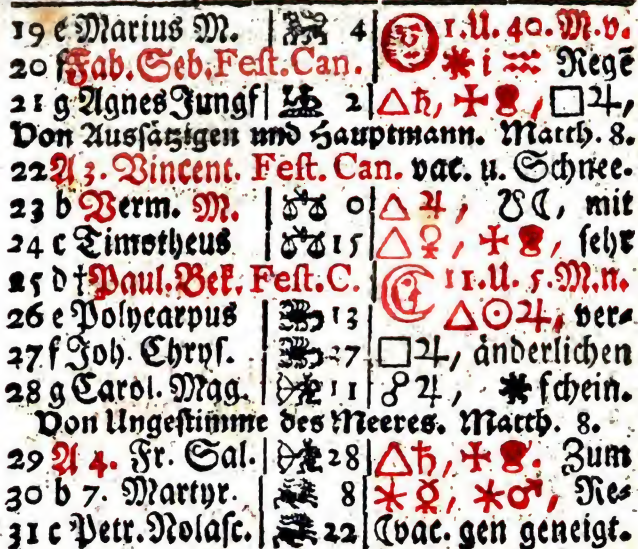 19 e Marius M. 4 1. U. 40. M. v.
20 f Fab. Seb. Fest. Can. ✶ i ♒ Regē
21 g Agnes Jungf 2 △♄, ✠, □♃,
Von Aussätzigen und Hauptmann. Matth. 8.
22 A 3. Vincent. Fest. Can. vac. u. Schnee-
23 b Verm. M. 0 △♃, ☋☾, mit
24 c Timotheus 15 △♀, ✠, sehr
25 d † Paul. Bek. Fest. C. 11. U. 5. M. n.
26 e Polycarpus 13 △☉♃, ver-
27 f Joh. Chrys. 27 □♃, änderlichen
28 g Carol. Mag. 11 ☍♃, ✶ schein.
Von Ungestimme des Meeres. Matth. 8.
29 A 4. Fr. Sal. 28 △♄, ✠. Zum
30 b 7. Martyr. 8 ✶☿, ✶♂, Re-
31 c Petr. Nolasc. 22 ☾vac. gen geneigt.